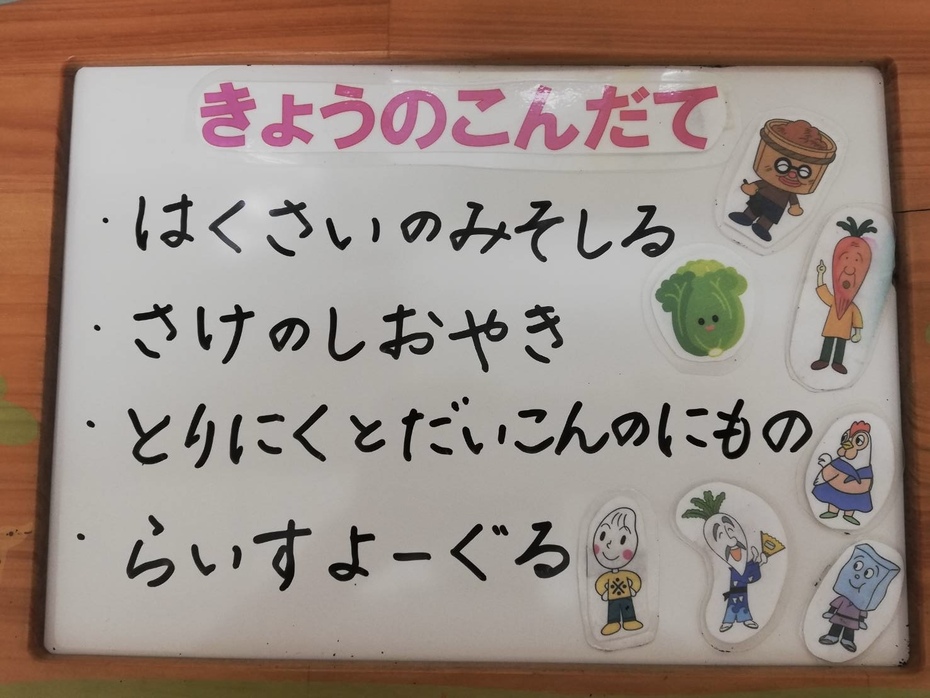 きょうのこんだて
・はくさいのみそしる
・さけのしおやき
・とりにくとだいこんのにもの
・らいすよーぐる